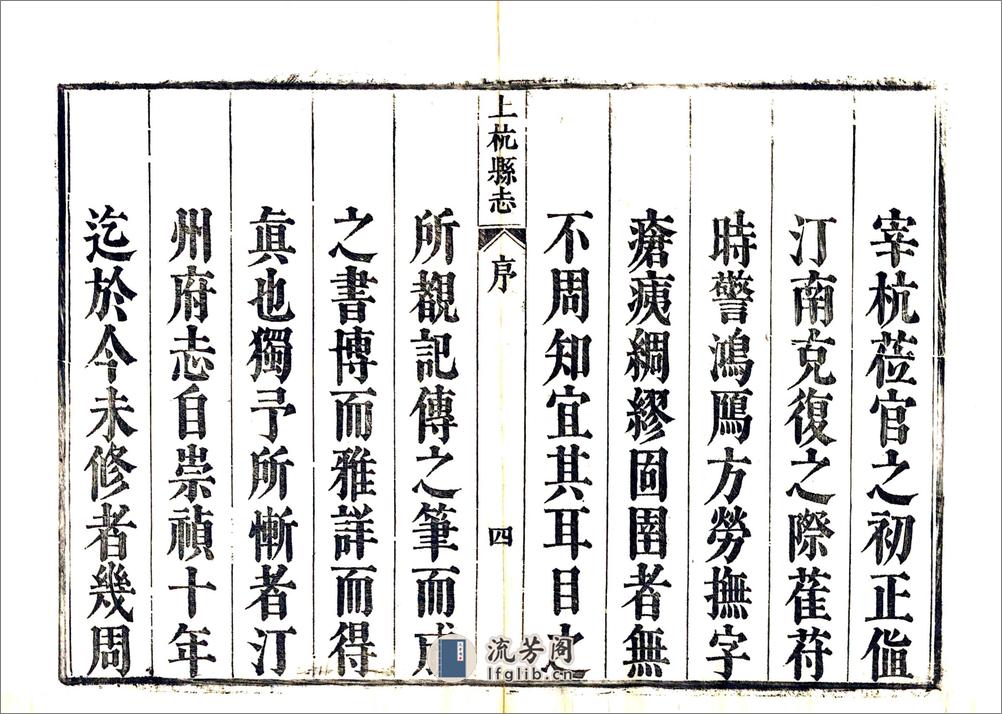 宰杭莅官之初正値
汀南克復之際萑苻
時警鴻鴈方勞撫字
瘡痍綢繆固圉者無
不周知宜其耳目之
上杭縣志
序
四
所覩記傳之筆而成
之書博而雅詳而得
眞也獨予所慚者汀
州府志自崇禎十年
迄於今未修者幾周
流芳阁
lfglib.cn